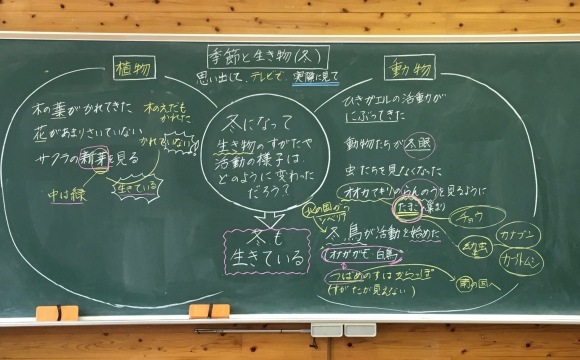 季節と生き物(冬)
思い出して、テレビで、実際に見て
植物
木の葉がかれてきた
花があまりさいていない
サクラの新芽を見る
中は緑
生きている
木のえだも
かれた
かれていない!
冬になって
生き物のすがたや
活動の様子は
どのように変わった
だろう?
冬も
生きている
動物
ひきガエルの活動が
にぶってきた
動物たちが冬眠
虫たちを見なくなった
オオカマキリのらんのうを見るように
たまご
チョウ
幼虫
カナブン
カブトムシ
北の国から
シベリア
冬鳥が活動を始めた
オナガガモ・白鳥
つばめのすはからっぽ
(すがたが見えない)
南の国へ